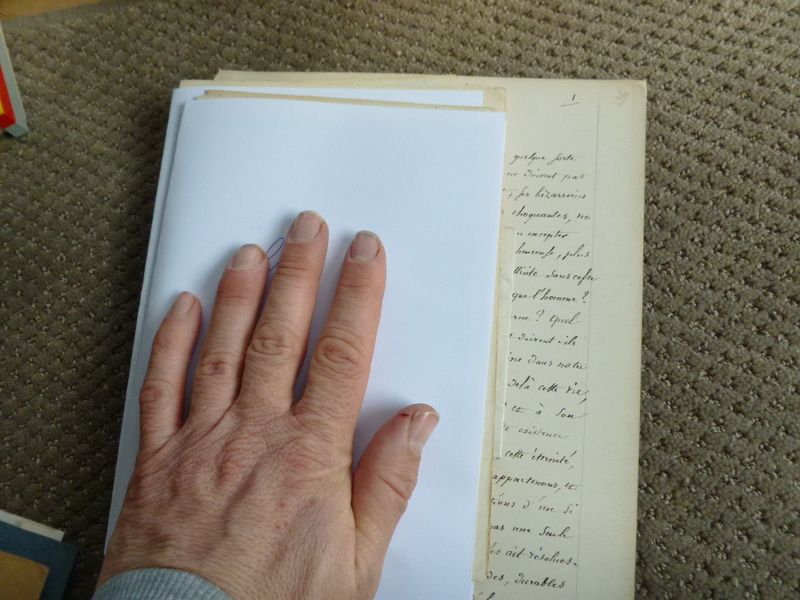 1
29
quelque sorte
ne doivent pas
ses bizarreries
choquantes, ne
excepter
heureuse, plus
dans cette
que l'homme ?
? Quel
doivent-ils
dans notre
delà cette vie,
et à son
existence
cette éternité,
appartenons, et
d'un si
pas une seule
les ait résolues.
durables